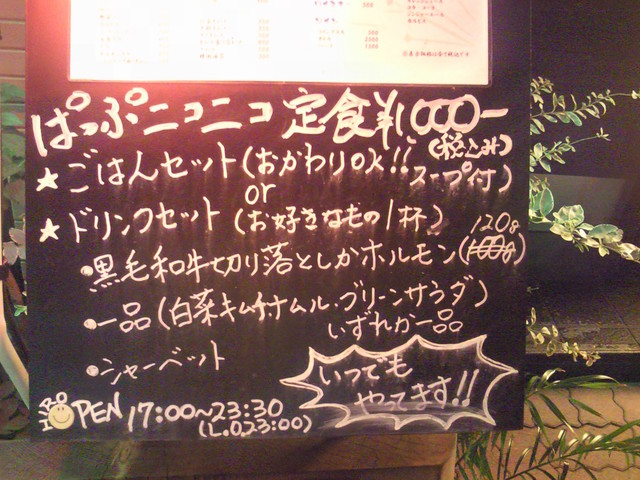 ぱっぷニコニコ 定食 ¥1000-
(税込み)
★ごはんセット(おかわりOK!! スープ付)
or
★ドリンクセット(お好きなもの1杯)
120g
・黒毛和牛切り落としかホルモン(100g)
・一品(白菜キムチ・ナムル・グリーンサラダ)
いずれか一品
・シャーベット
いつでも
やってます!!
OPEN 17:00~23:30
(L.O.23:00)